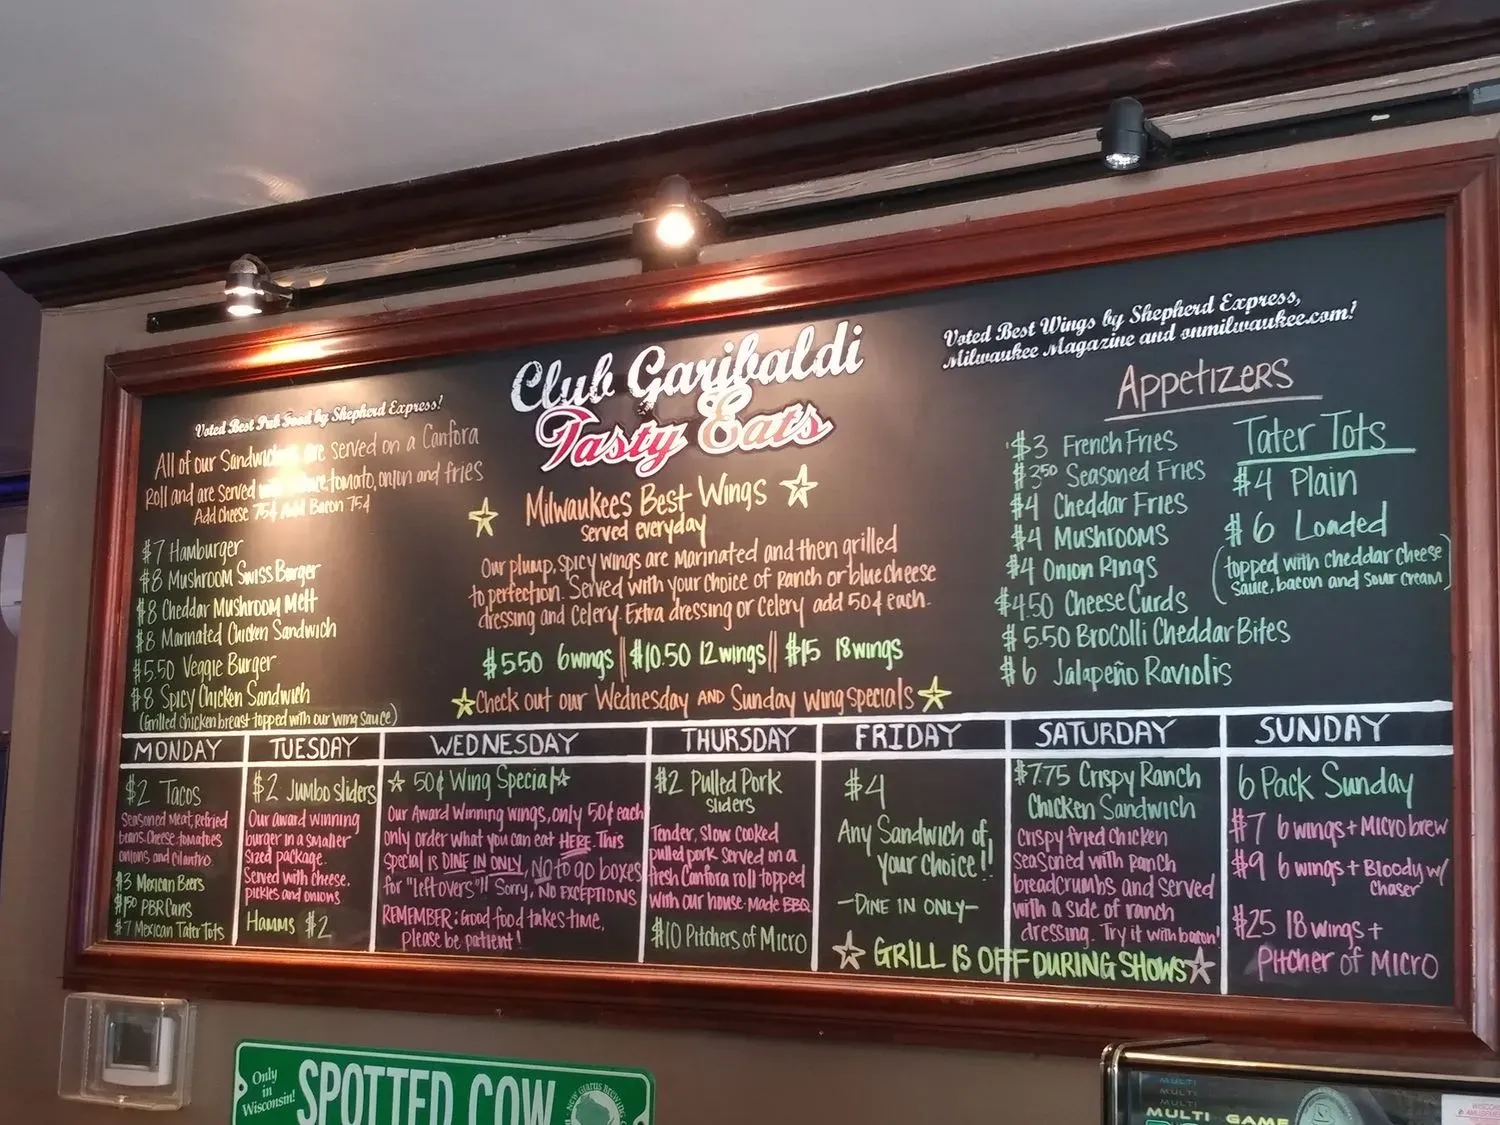 Voted Best Pub Food by Shepherd Express!
All of our Sandwiches are served on a Canfora
Roll and are served tomato, onion and fries
Add cheese 75¢ Add Bacon 75¢
$7 Hamburger
$8 Mushroom Swiss Burger
$8 Cheddar Mushroom Melt
$8 Marinated Chicken Sandwich
$5.50 Veggie Burger
$8 Spicy Chicken Sandwich
(Grilled chicken breast topped with our wing sauce)
Club Garibaldi
Tasty Eats
Milwaukees Best Wings
served everyday
Our plump, spicy wings are marinated and then grilled
to perfection. Served with your choice of ranch or blue cheese
dressing and celery. Extra dressing or celery add 50¢ each.
$5.50 6 wings || $10.50 12 wings || $15 18 wings
Check out our Wednesday and Sunday wing specials
Voted Best Wings by Shepherd Express,
Milwaukee Magazine and onmilwaukee.com!
Appetizers
$3 French Fries
$3.50 Seasoned Fries
$4 Cheddar Fries
$4 Mushrooms
$4 Onion Rings
$4.50 Cheese Curds
$5.50 Brocolli Cheddar Bites
$6 Jalapeño Raviolis
Tater Tots
$4 Plain
$6 Loaded
(topped with cheddar cheese
sauce, bacon and sour cream)
MONDAY
$2 Tacos
Seasoned Meat, Refried
beans, cheese, tomatoes
onions and cilantro.
$3 Mexican Beers
$1.50 PBR Cans
$7 Mexican Tater Tots
TUESDAY
$2 Jumbo sliders
Our award winning
burger in a smaller
sized package.
Served with cheese,
pickles and onions
Hamms $2
WEDNESDAY
50¢ Wing Special
Our Award Winning wings, only 50¢ each
only order what you can eat HERE. This
special is DINE IN ONLY, NO to go boxes
for "leftovers"!! Sorry, NO EXCEPTIONS
REMEMBER: Good food takes time,
please be patient!
THURSDAY
$2 Pulled Pork
sliders
Tender, slow cooked
pulled pork served on a
fresh Canfora roll topped
with our house-made BBQ
$10 Pitchers of Micro
FRIDAY
$4
Any Sandwich of
your choice!!
-DINE IN ONLY-
SATURDAY
$7.75 Crispy Ranch
Chicken Sandwich
crispy fried chicken
seasoned with ranch
breadcrumbs and served
with a side of ranch
dressing. Try it with bacon!
GRILL IS OFF DURING SHOWS
SUNDAY
6 Pack Sunday
$7 6 wings + Microbrew
$9 6 wings + Bloody w/
chaser
$25 18 wings +
Pitcher of Micro
Only
in
Wisconsin!
SPOTTED COW
NEW GLARUS BREWING
MULTI
MULTI
MULTI
MULTI GAME